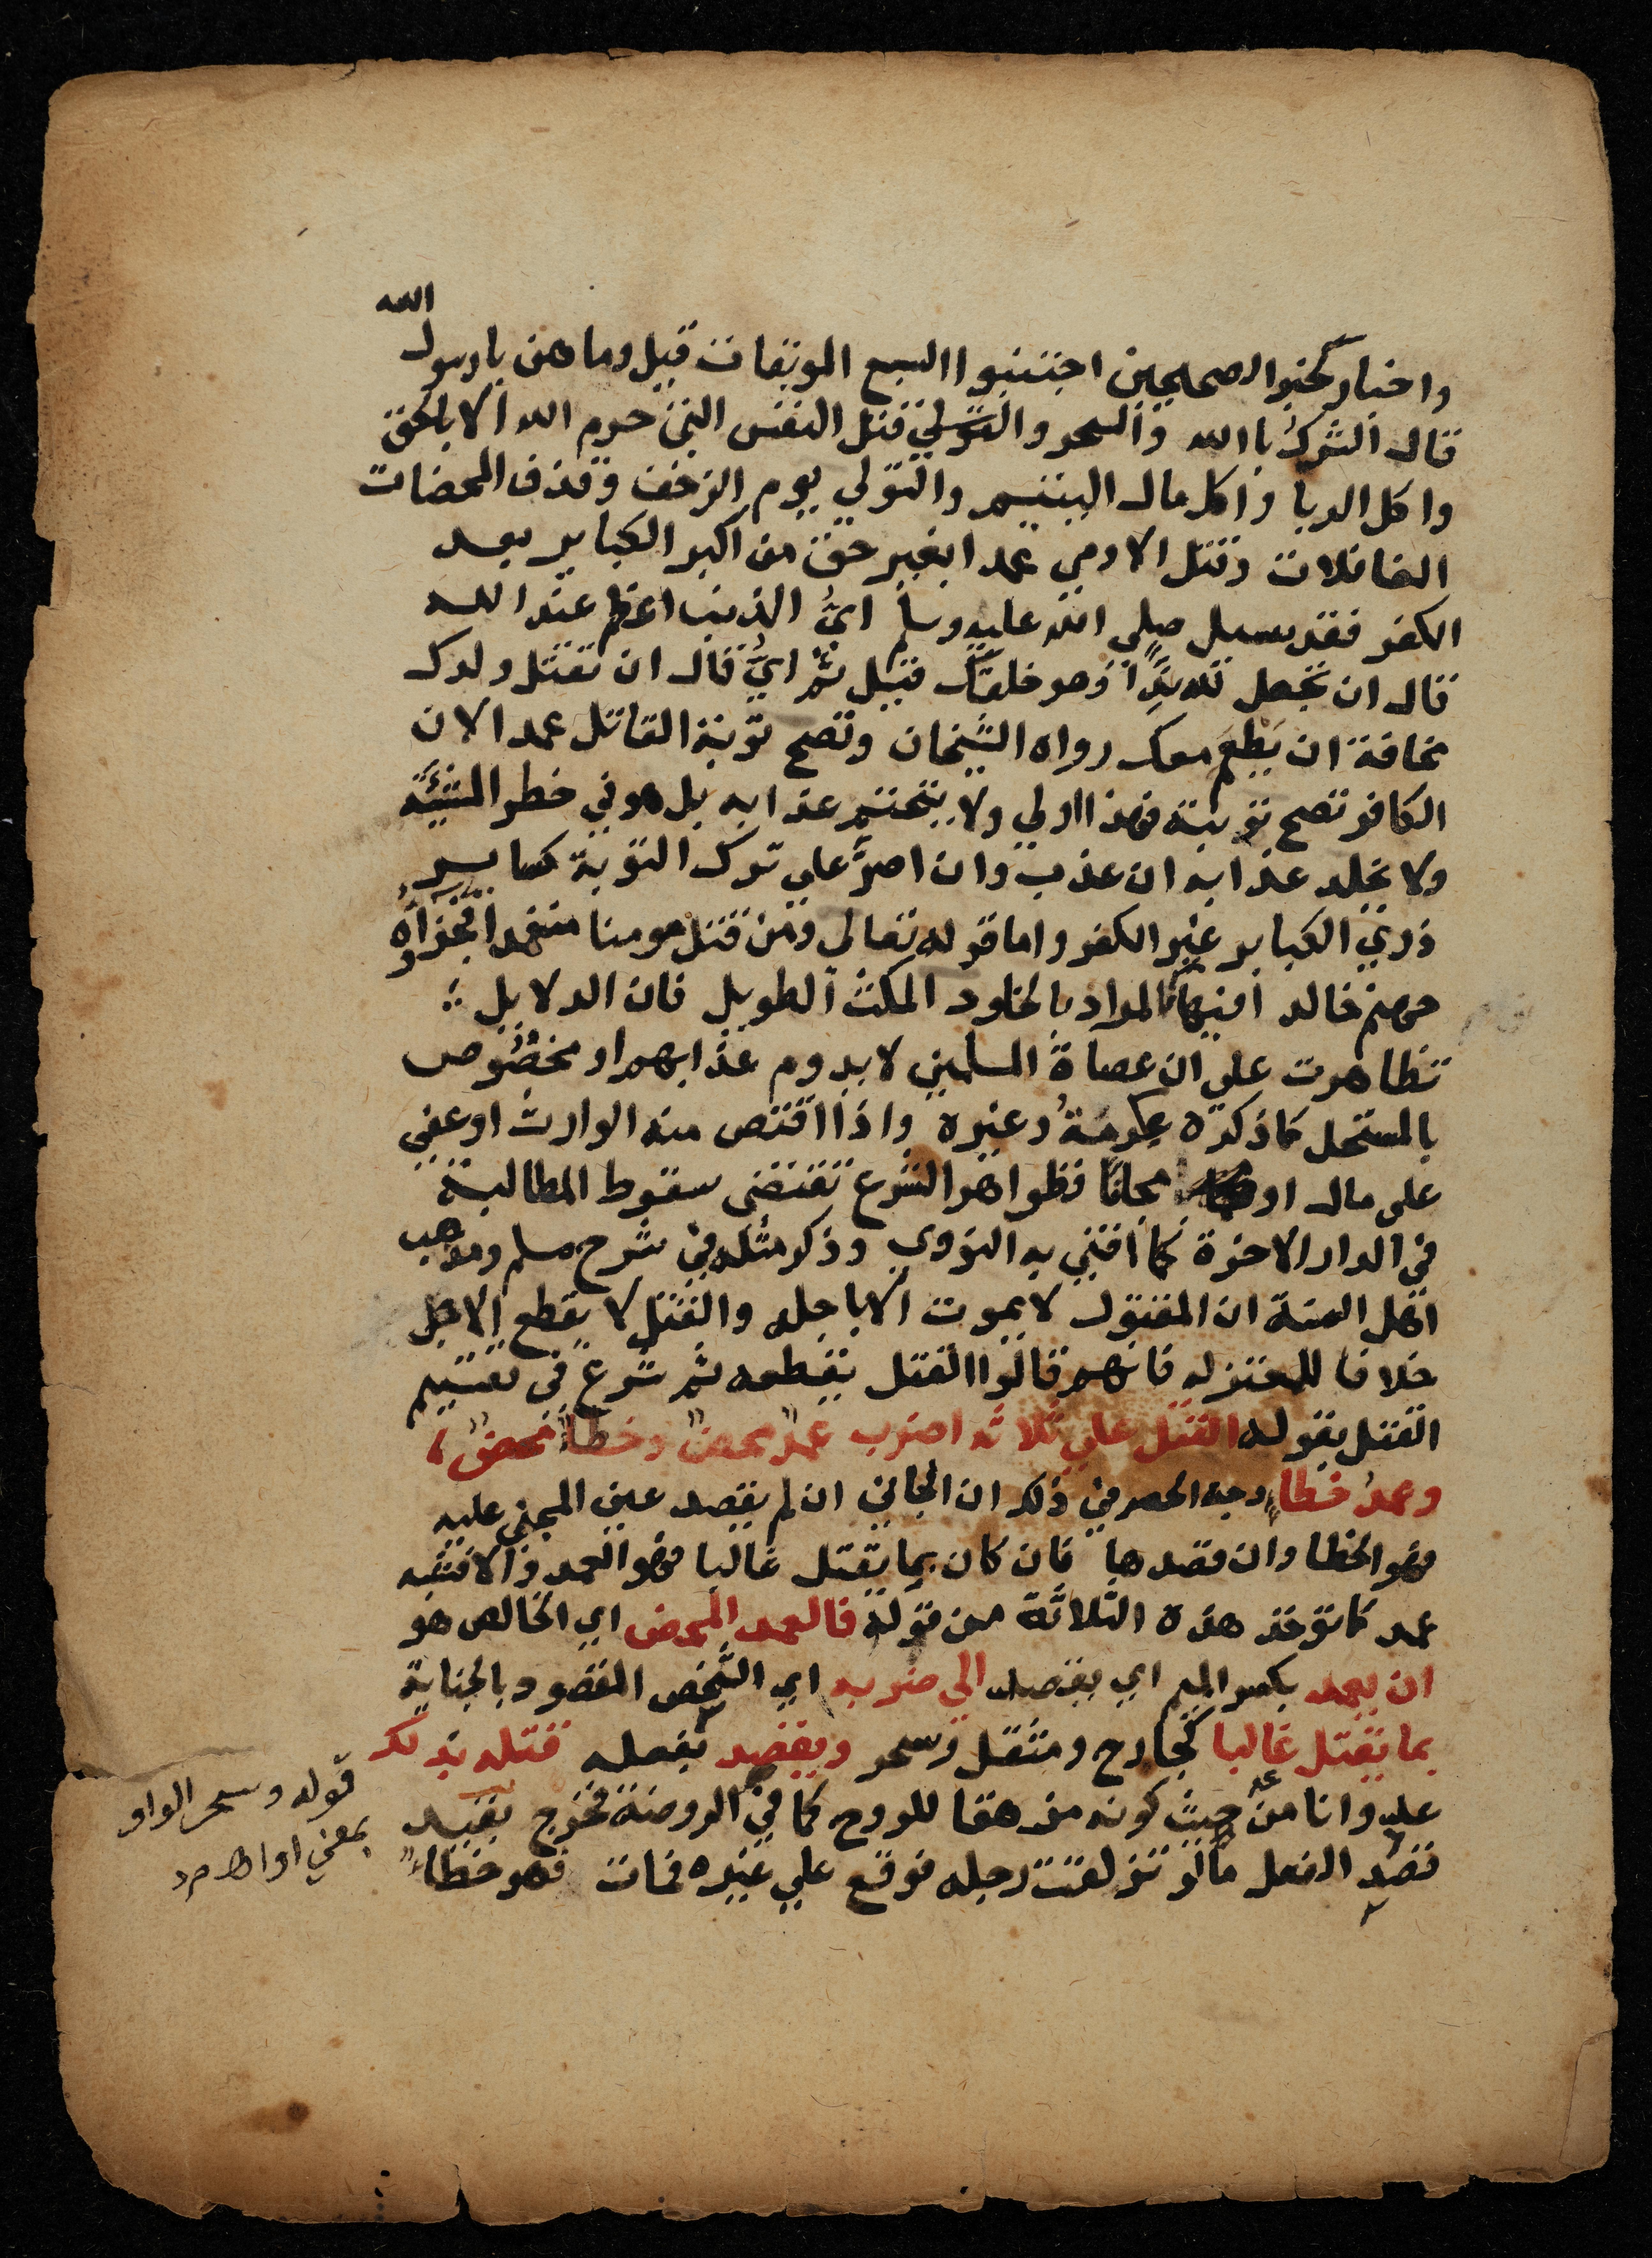 واخبار كخبر الصحيحين اجتنبوا السبع الموبقات قيل وما هن يا رسول الله
قال الشرك باالله والسحر وقتل النفس التي حرم الله الا بالحق
واكل الربا واكل مال اليتيم والتولي يوم الزحف وقذف المحصنات
الغافلات وقتل الادمي عمدا بغير حق من اكبر الكباير بعد
الكفر فقد سيل صلى الله عليه وسلم ايُّ الذنب اعظم عند الله
قال ان تجعل لله ندًّا وهو خلقك قيل ثم ايُّ قال ان تقتل ولدك
مخافة ان يَطعَم معك رواه الشيخان وتصح توبة القاتل عمدا لان
الكافر تصح توبته فهذا اولى ولا يتحتم عذابه بل هو في خطر المشيَّة
ولا يخلد عذابه ان عذب وان اصرَّ علي ترك التوبة كساير
ذوي الكباير غير الكفر واما قوله تعالى ومن قتل مومنا متعمدا فجزاؤه
جهنم خالدا فيها فالمراد بالخلود المكث الطويل فان الدلايل
تظاهرت على ان عصاة المسلمين لا يدوم عذابهم او مخصوص
بالمستحل كما ذكره عكرمةُ وغيره واذا اقتص منه الوارث او عفى
على مال او مجانا فظواهر الشرع تقتضى سقوط المطالبة
في الدار الاخرة كما افتى به النووي وذكر مثله في شرح مسلم ومذهب
اهل السنة ان المقتول لا يموت الا باجله والقتل لا يقطع الاجل
خلافا للمعتزله فانهم قالوا القتل يقطعه ثم شرع في تقسيم
القتل بقوله القتل علي ثلاثه اضرب عمدٌ محضٌ وخطأٌ محضٌ
وعمدُ خطاءٍ وجه الحصر في ذلك ان الجاني ان لم يقصد عين المجني عليه
فهو الخطا وان قصدها فان كان بما يقتل غالبا فهو العمد والا فشبه
عمد كما توخذ هذه الثلاثة من قوله فالعمد المحض اي الخالص هو
ان يعمد بكسر الميم اي يقصد الي ضربه اي الشخص المقصود بالجناية
بما يقتل غالبا كجارح ومثقل وسحر ويقصد بفعله قتله بذلك
عدوانا من حيث كونه مزهقا للروح كما في الروضة فخرج بقيد
قصد الفعل ما لو تزلقت رجله فوقع علي غيره فمات فهو خطاءٌ
قوله وسحر الواو
بمعنى او